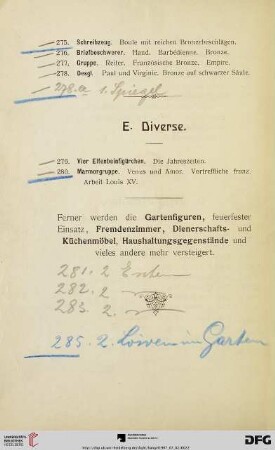 275. Schreibzeug. Boule mit reichen Bronzebeschlägen.
276. Briefbeschwerer. Hand. Barbédienne. Bronze.
277. Gruppe. Reiter. Französische Bronze. Empire.
278. Desgl. Paul und Virginie. Bronze auf schwarzer Säule.
278.a 1. Spiegel
E. Diverse.
279. Vier Elfenbeinfigürchen. Die Jahreszeiten.
280. Marmorgruppe. Venus und Amor. Vortreffliche franz.
Arbeit Louis XV.
Ferner werden die Gartenfiguren, feuerfester
Einsatz, Fremdenzimmer, Dienerschafts- und
Küchenmöbel, Haushaltungsgegenstände und
vieles andere mehr versteigert.
281. 2
282. 2
283. 2.
285. 2. Löwen im Garten
UNIVERSITÄTS-
BIBLIOTHEK
HEIDELBERG
DFG